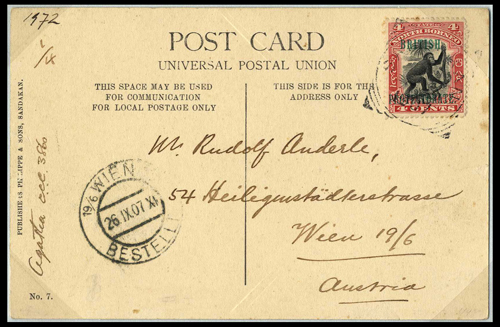 1972
1/IX
POST CARD
UNIVERSAL POSTAL UNION
THIS SPACE MAY BE USED
FOR COMMUNICATION
FOR LOCAL POSTAGE ONLY
THIS SIDE IS FOR THE
ADDRESS ONLY
4 NORTH BORNEO 4
BRITISH
PROTECTORATE
4 CENTS
Mr. Rudolf Anderle,
54 Heiligenstädterstrasse
Wien 19/6
Austria
19/6 WIEN
26.IX.07.XI
BESTELLT
PUBLISHERS PHILIPPE & SONS, SANDAKAN.
Agathea
No. 7.